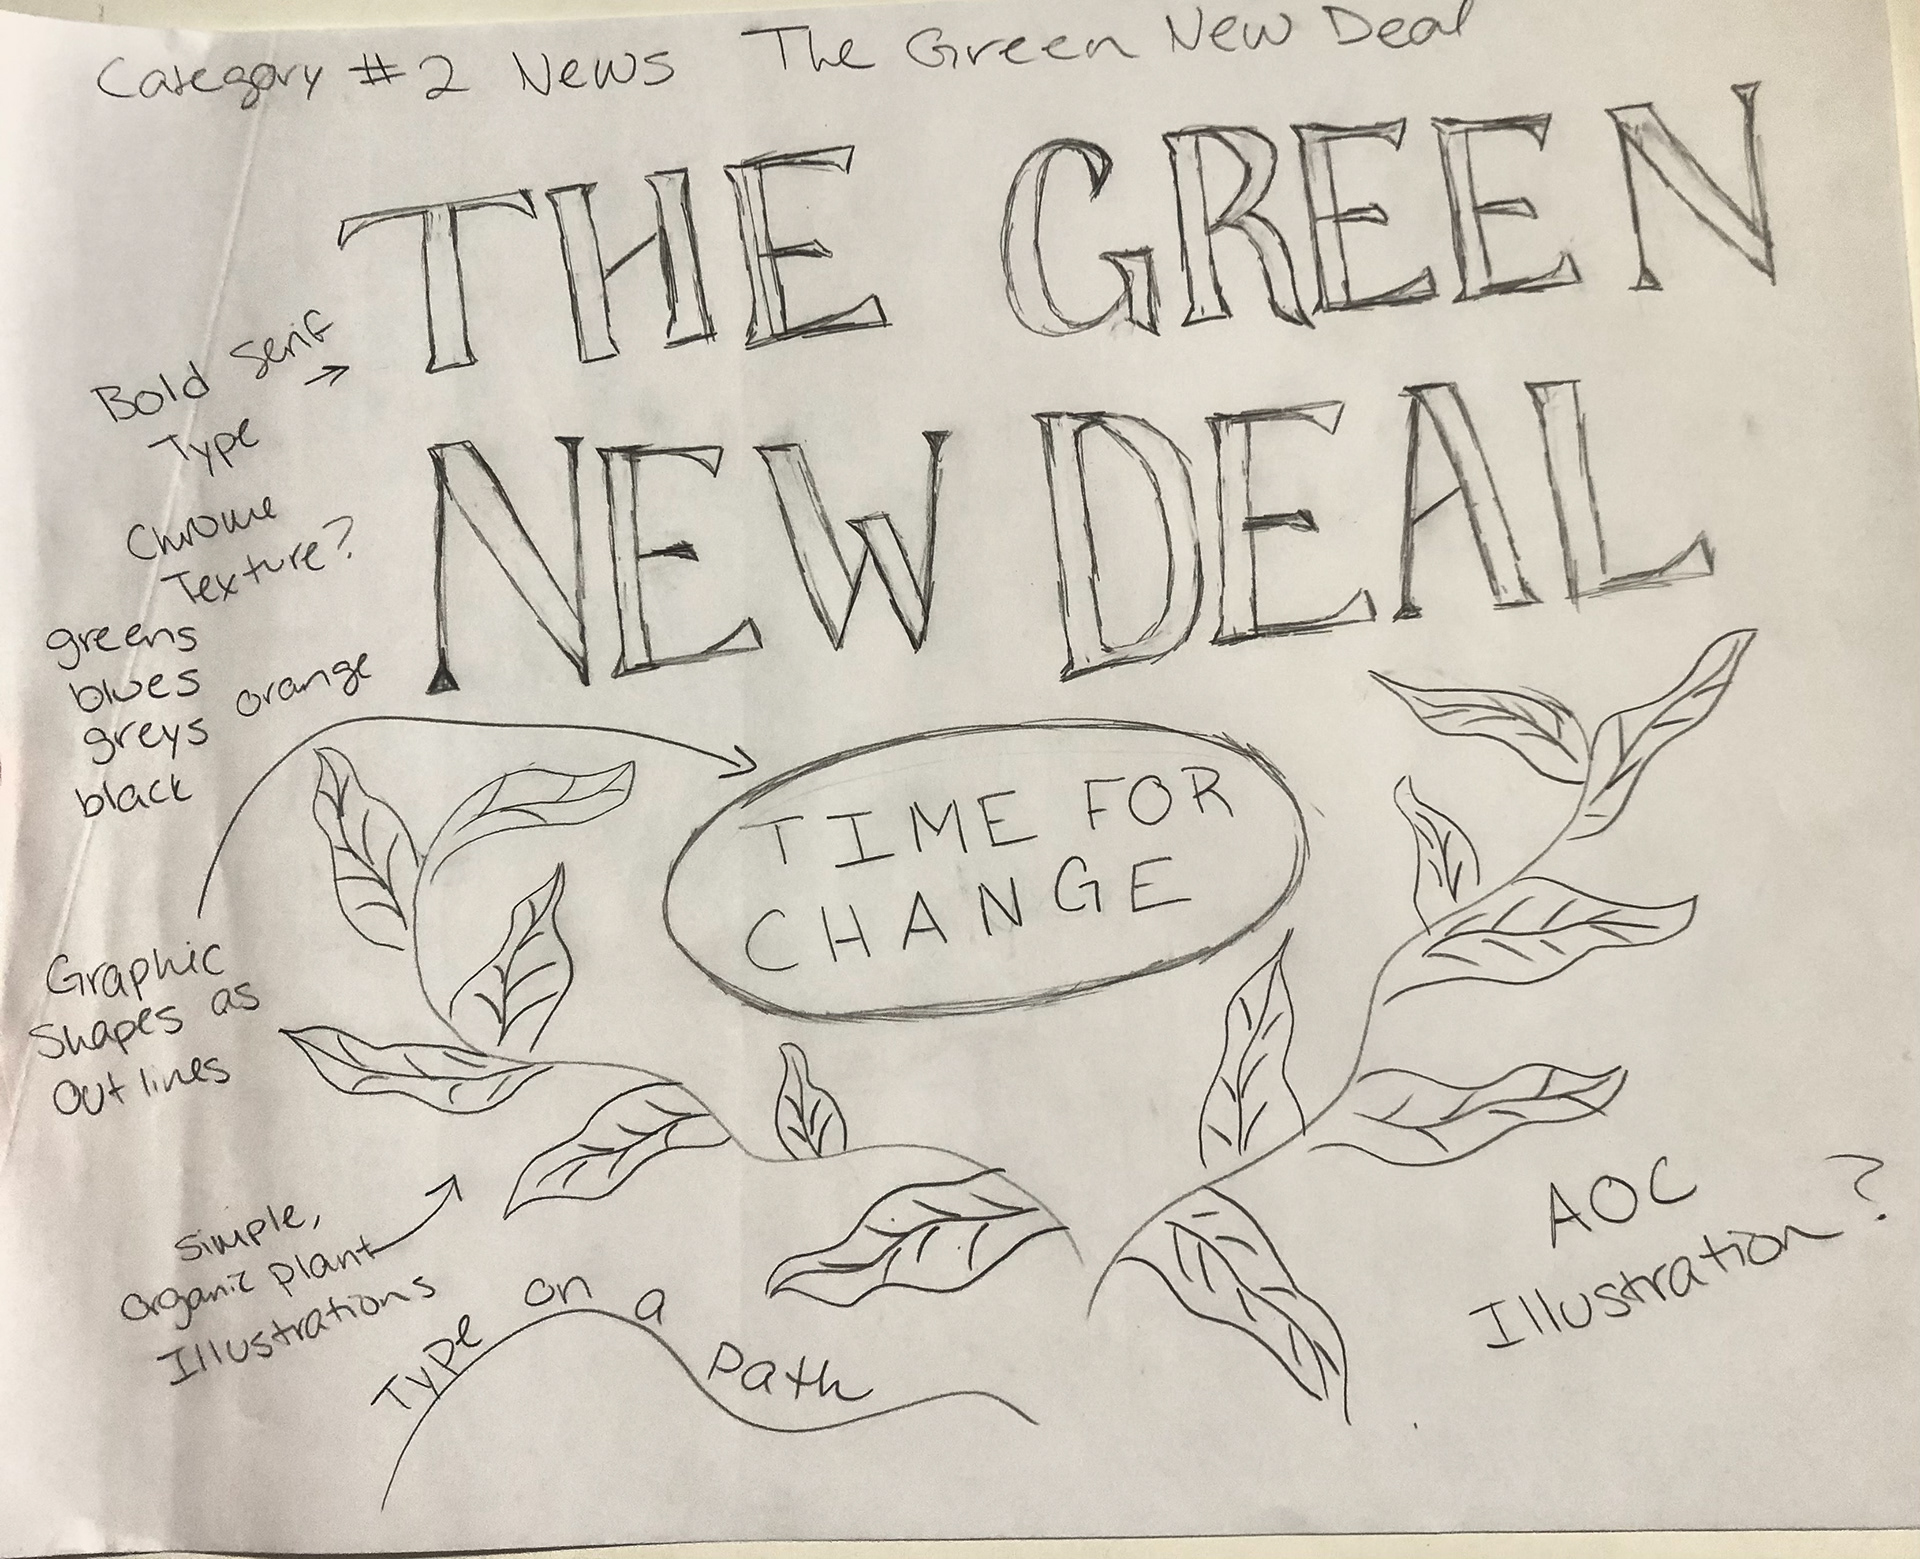 Category #2 News The Green New Deal
THE GREEN
NEW DEAL
Bold serif
Type
Chrome
Texture?
greens
blues
greys orange
black
TIME FOR
CHANGE
Graphic
Shapes as
Outlines
simple,
organic plant
Illustrations
Type on a path
AOC
Illustration?